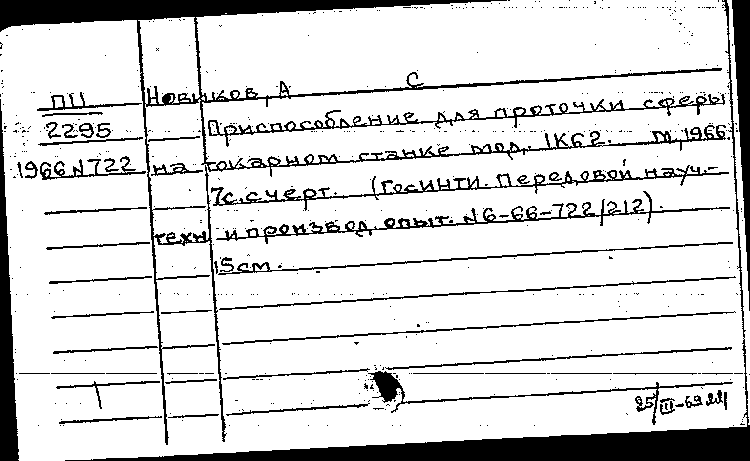 ПII Новиков, А С
2295 Приспособление для проточки сферы
1966 N722 на токарном станке мод. 1К62. М, 1966.
7с. с черт. (ГосИНТИ. Передовой науч.-
техн и производ. опыт. N6-66-722/212).
15см.
25/III-69